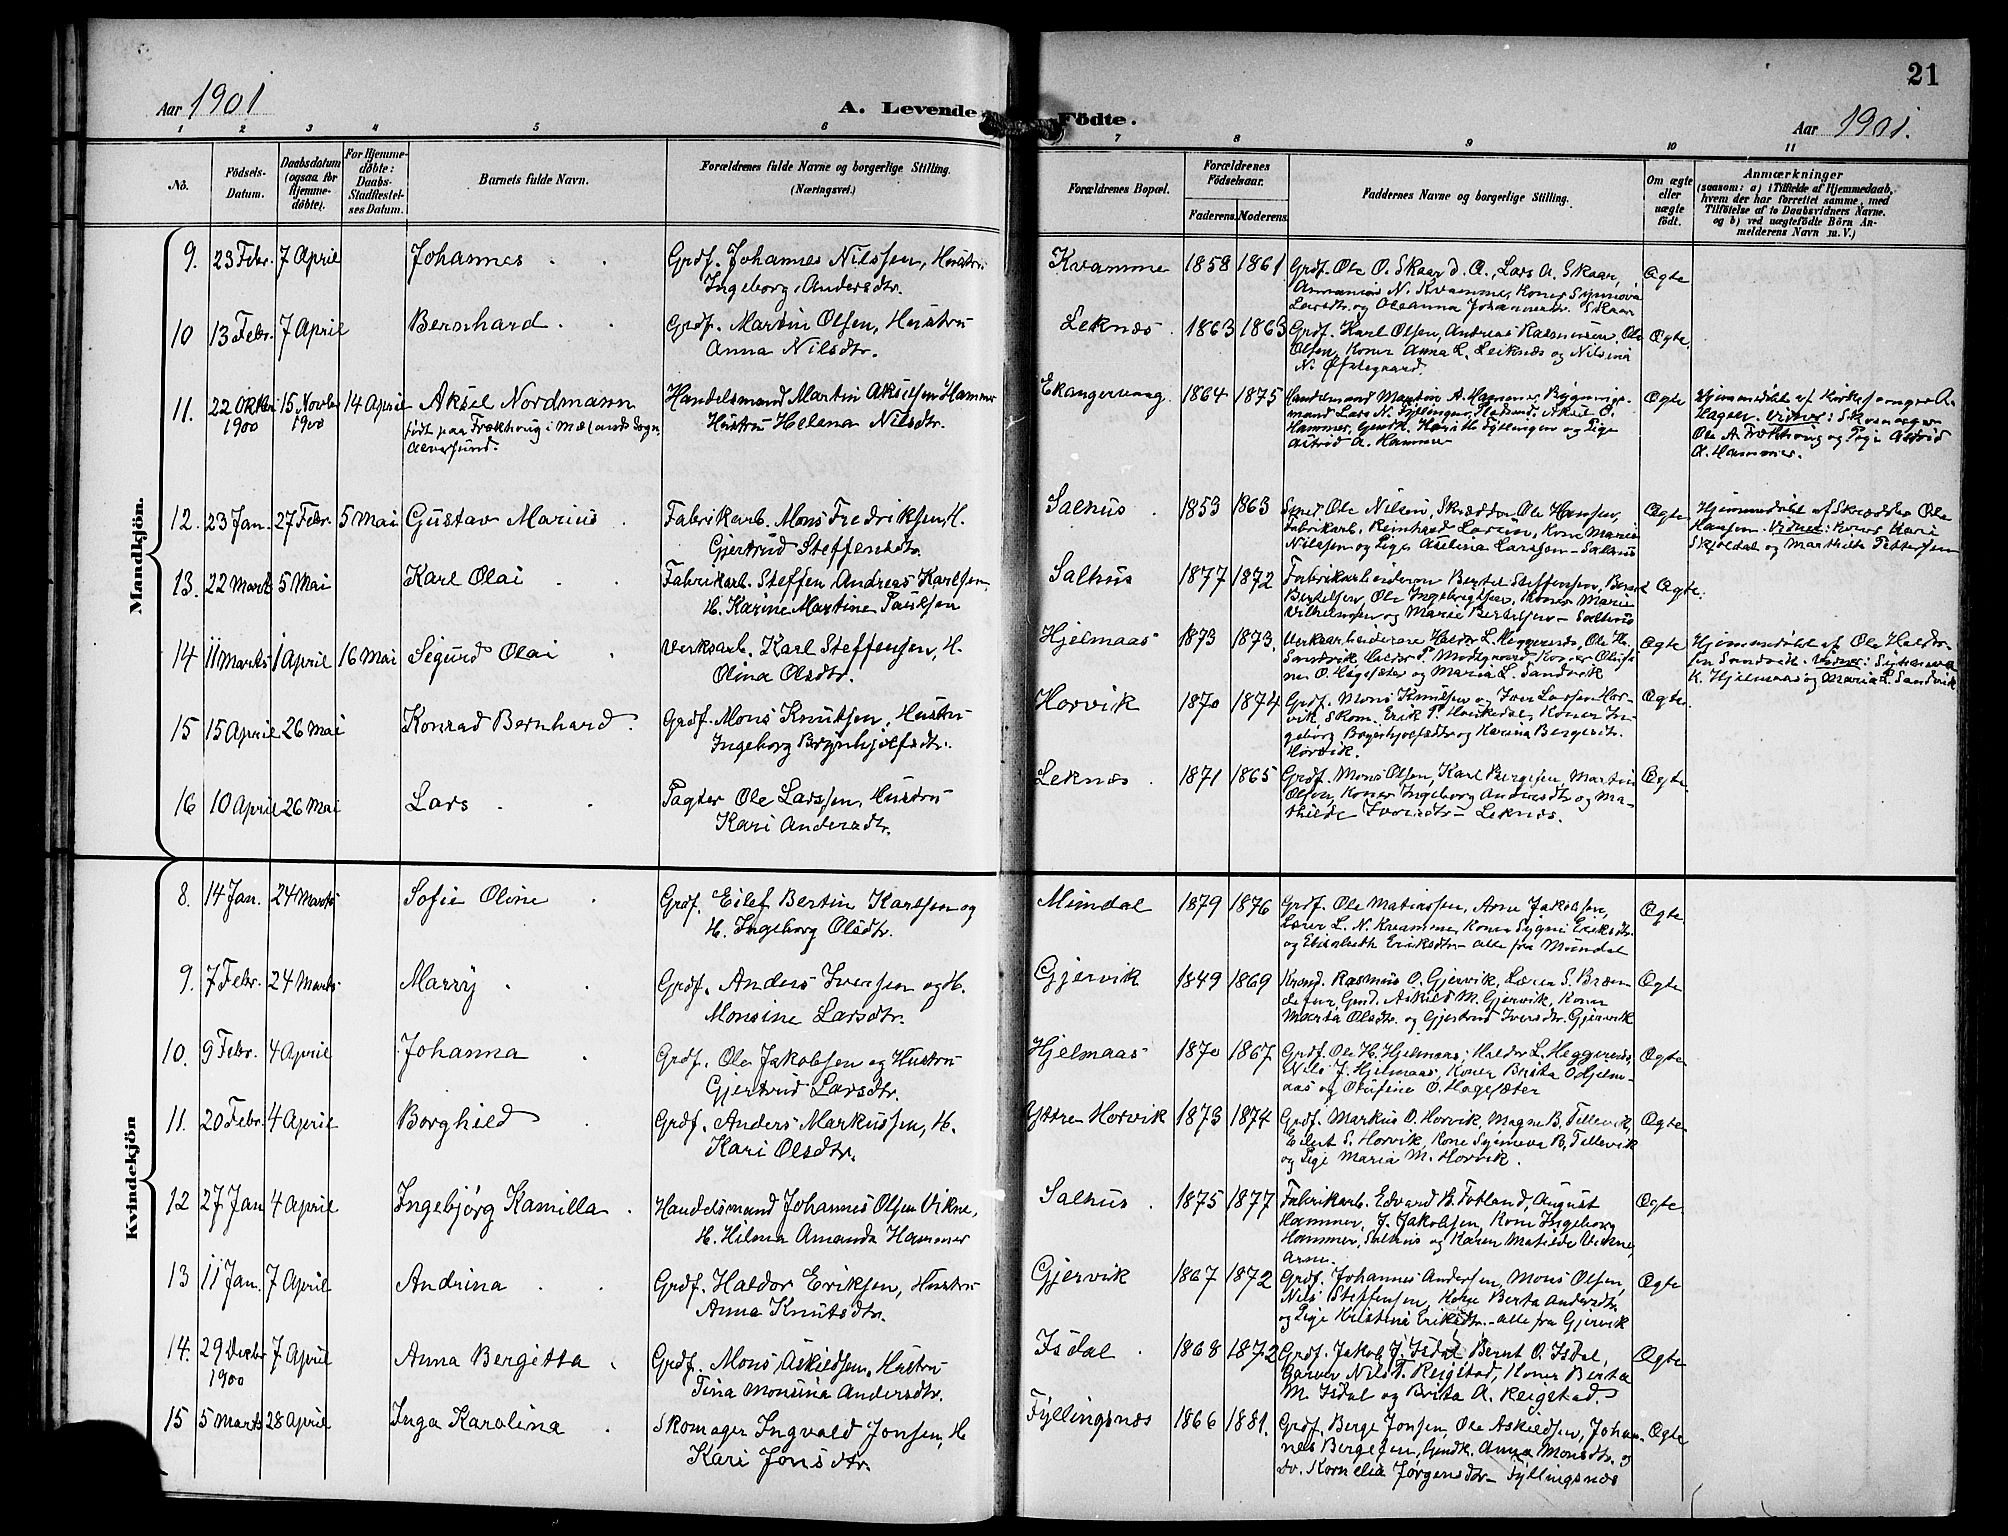 21
Aar 1901
A. Levende Födte.
Aar 1901.
1 2 3 4 5 6 7 8 9 10 11
No.
Födsels-Datum.
Daabsdatum (ogsaa for Hjemme-döbte).
For Hjemme-döbte: Daabs-Stadfæstel-ses Datum.
Barnets fulde Navn.
Forældrenes fulde Navne og borgerlige Stilling.
(Næringsvei.)
Forældrenes Bopæl.
Forældrenes Födselsaar.
Faderens. Moderens.
Faddernes Navne og borgerlige Stilling.
Om ægte eller uægte födt.
Anmærkninger
(saasom: a) i Tilfælde af Hjemmedaab, hvem der har forrettet samme, med Tilföielse af to Daabsvidners Navne, og b) ved uægtefödte Börn An-melderens Navn m. V.)
Mandkjön.
9. 23 Febr. 7 April Johannes Grdf. Johannes Nilssen, Hustru Kvamme 1858 1861 Grdf. Ole O. Skaar d. A., Lars A. Skaar, Ægte
Ingeborg Andersdtr. N. Kvamme, Koner Synnøva
Larsdtr. og Oleanna Johannesdtr. Skaar
10 13 Febr. 7 April Bernhard Grdf. Martin Olsen, Hustru Leknæs 1863 1863 Grdf. Karl Olsen, Andreas Rasmussen, Ole Ægte.
Anna Nilsdtr. Olsen, Koner Anna L. Leiknæs og Nilsina
N. Øfstegaard.
11. 22 Oktbr 1900 15 Novbr 1900 14 April Aksel Nordmann Handelsmand Martin Akselsen Hammer Ekangervaag 1864 1875 Handelsmand Martin A. Hammer, Bygnings- Ægte Hjemmedøbt af Kirkesanger A.
født paa Træthoug i Mælands Sogn, Hustru Helena Nilsdtr. mand Lars N. Fyllingen, Aksel O. Hagen. Vidner: Skomager
Alversund. Hammer, Gmdk. Fyllingen og Pige Ole A. og Pige Astrid
Astrid A. Hammer A. Hammer.
12. 23 Jan. 27 Febr. 5 Mai Gustav Marius Fabrikarb. Mons Fredriksen, H. Salhus 1853 1863 Smed Ole Nilsen, Skrædder Ole Hansen, Ægte Hjemmedøbt af Skrædder Ole
Gjertrud Steffensdtr. Fabrikarb. Reinhard Larsen, Kone Marie Hansen. Vidner: Koner Mari
Nilssen og Pige Larssen - Salhus Skjeldal og Marthite Pettersen
13. 22 Marts 5 Mai Karl Olai Fabrikarb. Steffen Andreas Karlsen, Salhus 1877 1872 Fabrikarbeiderne Bertel Steffensen, Bernt Ægte.
H. Karine Martine Paulsen Bertelsen, Ole Ingebrigtsen, Koner Marie
Vilhelmsen og Marie Bertelsen - Salhus
14 11 Marts 1 April 16 Mai Sigurd Olai Verksarb. Karl Steffensen, H. Hjelmaas 1873 1873. Verksarbeiderne Haldor L. Heggernæs, Ole H. Ægte Hjemmedøbt af Ole Haldor-
Olina Olsdtr. Sandvik, Haldor P. Midtgaard, Koner Olufi- sen Sandvik. Vidner:
ne O. Hagesæter og Maria L. Sandvik K. Hjelmaas og Maria L. Sandvik
15 15 April 26 Mai Konrad Bernhard Grdf. Mons Knutsen, Hustru Horvik 1870 1874 Grdf. Mons Knutsen og Iver Larssen Hor- Ægte
Ingeborg Brynhjolfsdtr. vik, Skom. Erik P. Koner In-
geborg og Karina Bergesdtr.
Horvik.
16 10 April 26 Mai Lars Pagter Ole Larssen, Hustru Leknæs 1871 1865 Grdf. Mons Olsen, Karl Bergesen, Martin Ægte.
Kari Andersdtr. Olsen, Koner Ingeborg Andersdtr. og Ma-
thilde Iversdtr. - Leknæs.
Kvindekjön
8. 14 Jan. 24 Marts Sofie Oline Grdf. Eilef Bertin Karlsen og Mundal 1879 1876 Grdf. Ole Matiassen, Arne Jakobsen, Ægte
H. Ingeborg Olsdtr. Lærer L. N. Kvamme, Koner Sygni Eriksdtr.
og Elisabeth Eriksdtr. - alle fra Mundal
9. 7 Febr. 24 Marts Marry Grdf. Anders Iversen og H. Gjervik 1849 1869 Rasmus O. Gjervik, Lærer S. Bræn- Ægte
Monsine Larsdtr. de Askild M. Gjervik, Koner
Marta Olsdtr. og Gjertrud Iversdtr. Gjervik
10. 9 Febr. 4 April Johanna Grdf. Ole Jakobsen og Hustru Hjelmaas 1870 1867 Grdf. Ole H. Hjelmaas, Haldor L. Heggernæs, Ægte
Gjertrud Larsdtr. Nils J. Hjelmaas, Koner Brita O. Hjelm-
aas og Olufine O. Hagesæter
11. 20 Febr. 4 April Borghild Grdf. Anders Markussen, H. Yttre Horvik 1873 1874 Grdf. Markus O. Horvik, Magne B. Tellevik, Ægte
Kari Olsdtr. Eilert S. Horvik, Kone Synneva B. Tellevik
og Pige Maria M. Horvik.
12 27 Jan 4 April Ingebjørg Kamilla Handelsmand Johannes Olsen Vikne, Salhus 1875 1877 Fabrikarb. Edvard B. Fotland, August Ægte.
H. Hilma Amanda Hammer Hammer, J. Jakobsen, Kone Ingeborg
Hammer, Salhus og Karen Matilde Vikne,
Arne.
13 11 Jan. 7 April Andrina Grdf. Haldor Eriksen, Hustru Gjervik 1867 1872 Grdf. Johannes Andersen, Mons Olsen, Ægte
Anna Knutsdtr. Nils Steffensen, Kone Berta Andersdtr.
og Pige Kristina Eriksdtr. - alle fra Gjervik
14. 29 Decbr 1900 7 April Anna Bergitta Grdf. Mons Askildsen, Hustru Isdal 1868 1872 Grdf. Jakob J. Isdal, Bernt O. Isdal, Ægte
Tina Monsina Andersdtr. Garver Nils T. Reigstad, Koner Berta
M. Isdal og Brita A. Reigstad
15 5 Marts 28 April Inga Karolina Skomager Ingvald Jonsen, H Fyllingsnæs 1866 1881. Grdf. Berge Jonsen, Ole Askildsen, Johan- Ægte
Kari Jonsdtr. nes Bergesen, Gmdk. Anna Monsdtr. og
Kornelia Jørgensdtr. - Fyllingsnæs